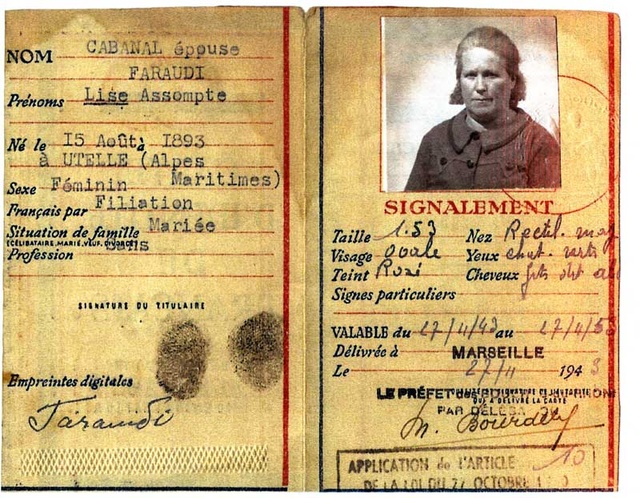 NOM CABANAL épouse
FARAUDI
Prénoms Lise Assompte
Né le 15 Août à 1893
à UTELLE (Alpes
Maritimes)
Sexe Féminin
Français par Filiation
Situation de famille Mariée
(CÉLIBATAIRE, MARIÉ, VEUF, DIVORCÉ)
Profession Sans
SIGNATURE DU TITULAIRE
Empreintes digitales
Faraudi
SIGNALEMENT
Taille 1.53 Nez Rectil. moy
Visage ovale Yeux chat. verts
Teint Rosé Cheveux
Signes particuliers
VALABLE du 27/11/43 au
Délivrée à MARSEILLE
Le 27/11 1943
LE PRÉFET
PAR DÉLÉG
M. Bourdely
APPLICATION de l'ARTICLE 10
DE LA LOI DU 27 OCTOBRE